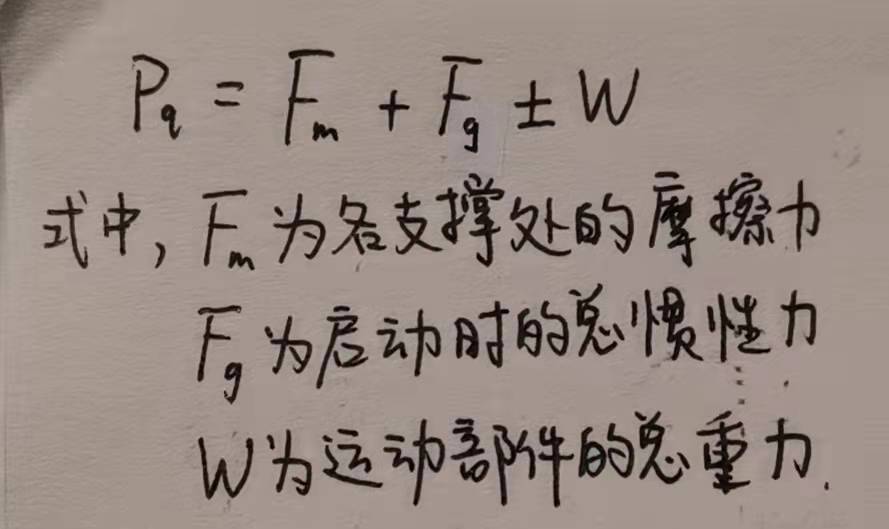 Pq = Fm + Fg ± W
式中, Fm为各支撑处的摩擦力
Fg为启动时的总惯性力
W为运动部件的总重力.